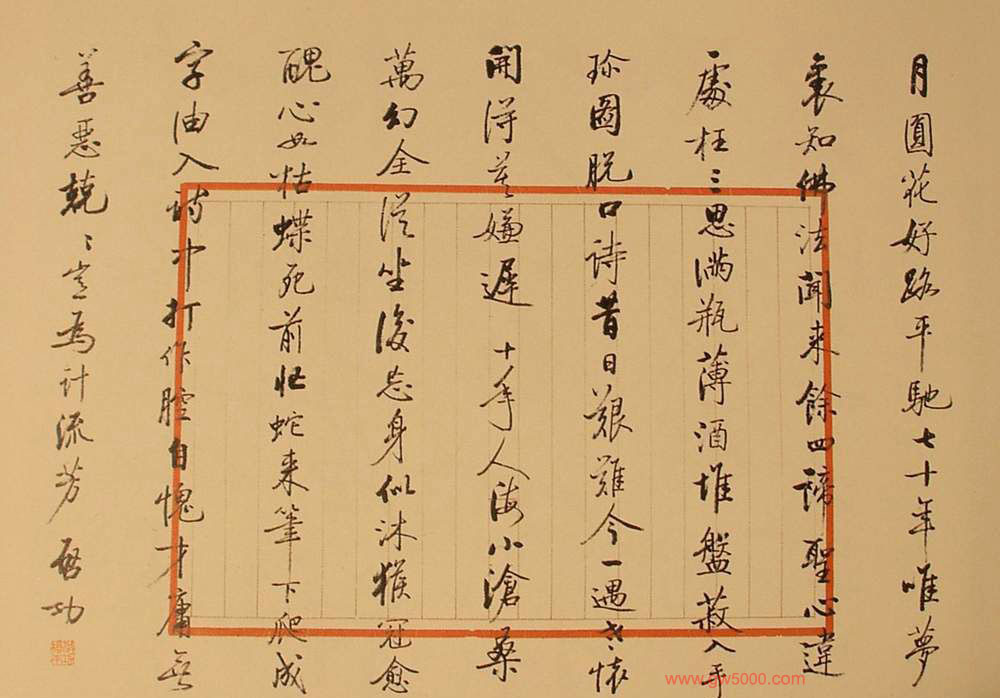 月圓花好路平馳七十年唯夢
裏知佛法聞来餘四諦聖心違
一處枉三思滿瓶薄酒堆盤菽入手
珎圖脱口诗昔日艱難今一遇老懷
開得莫嫌遲 十年人海小滄桑
萬幻全從坐後忘身似沐猴冠愈
醜心如枯蝶死前忙蛇来筆下爬成
字油入詩中打作腔自愧才庸無
善惡兢〻豈為计流芳 啓功
www.gw5000.com